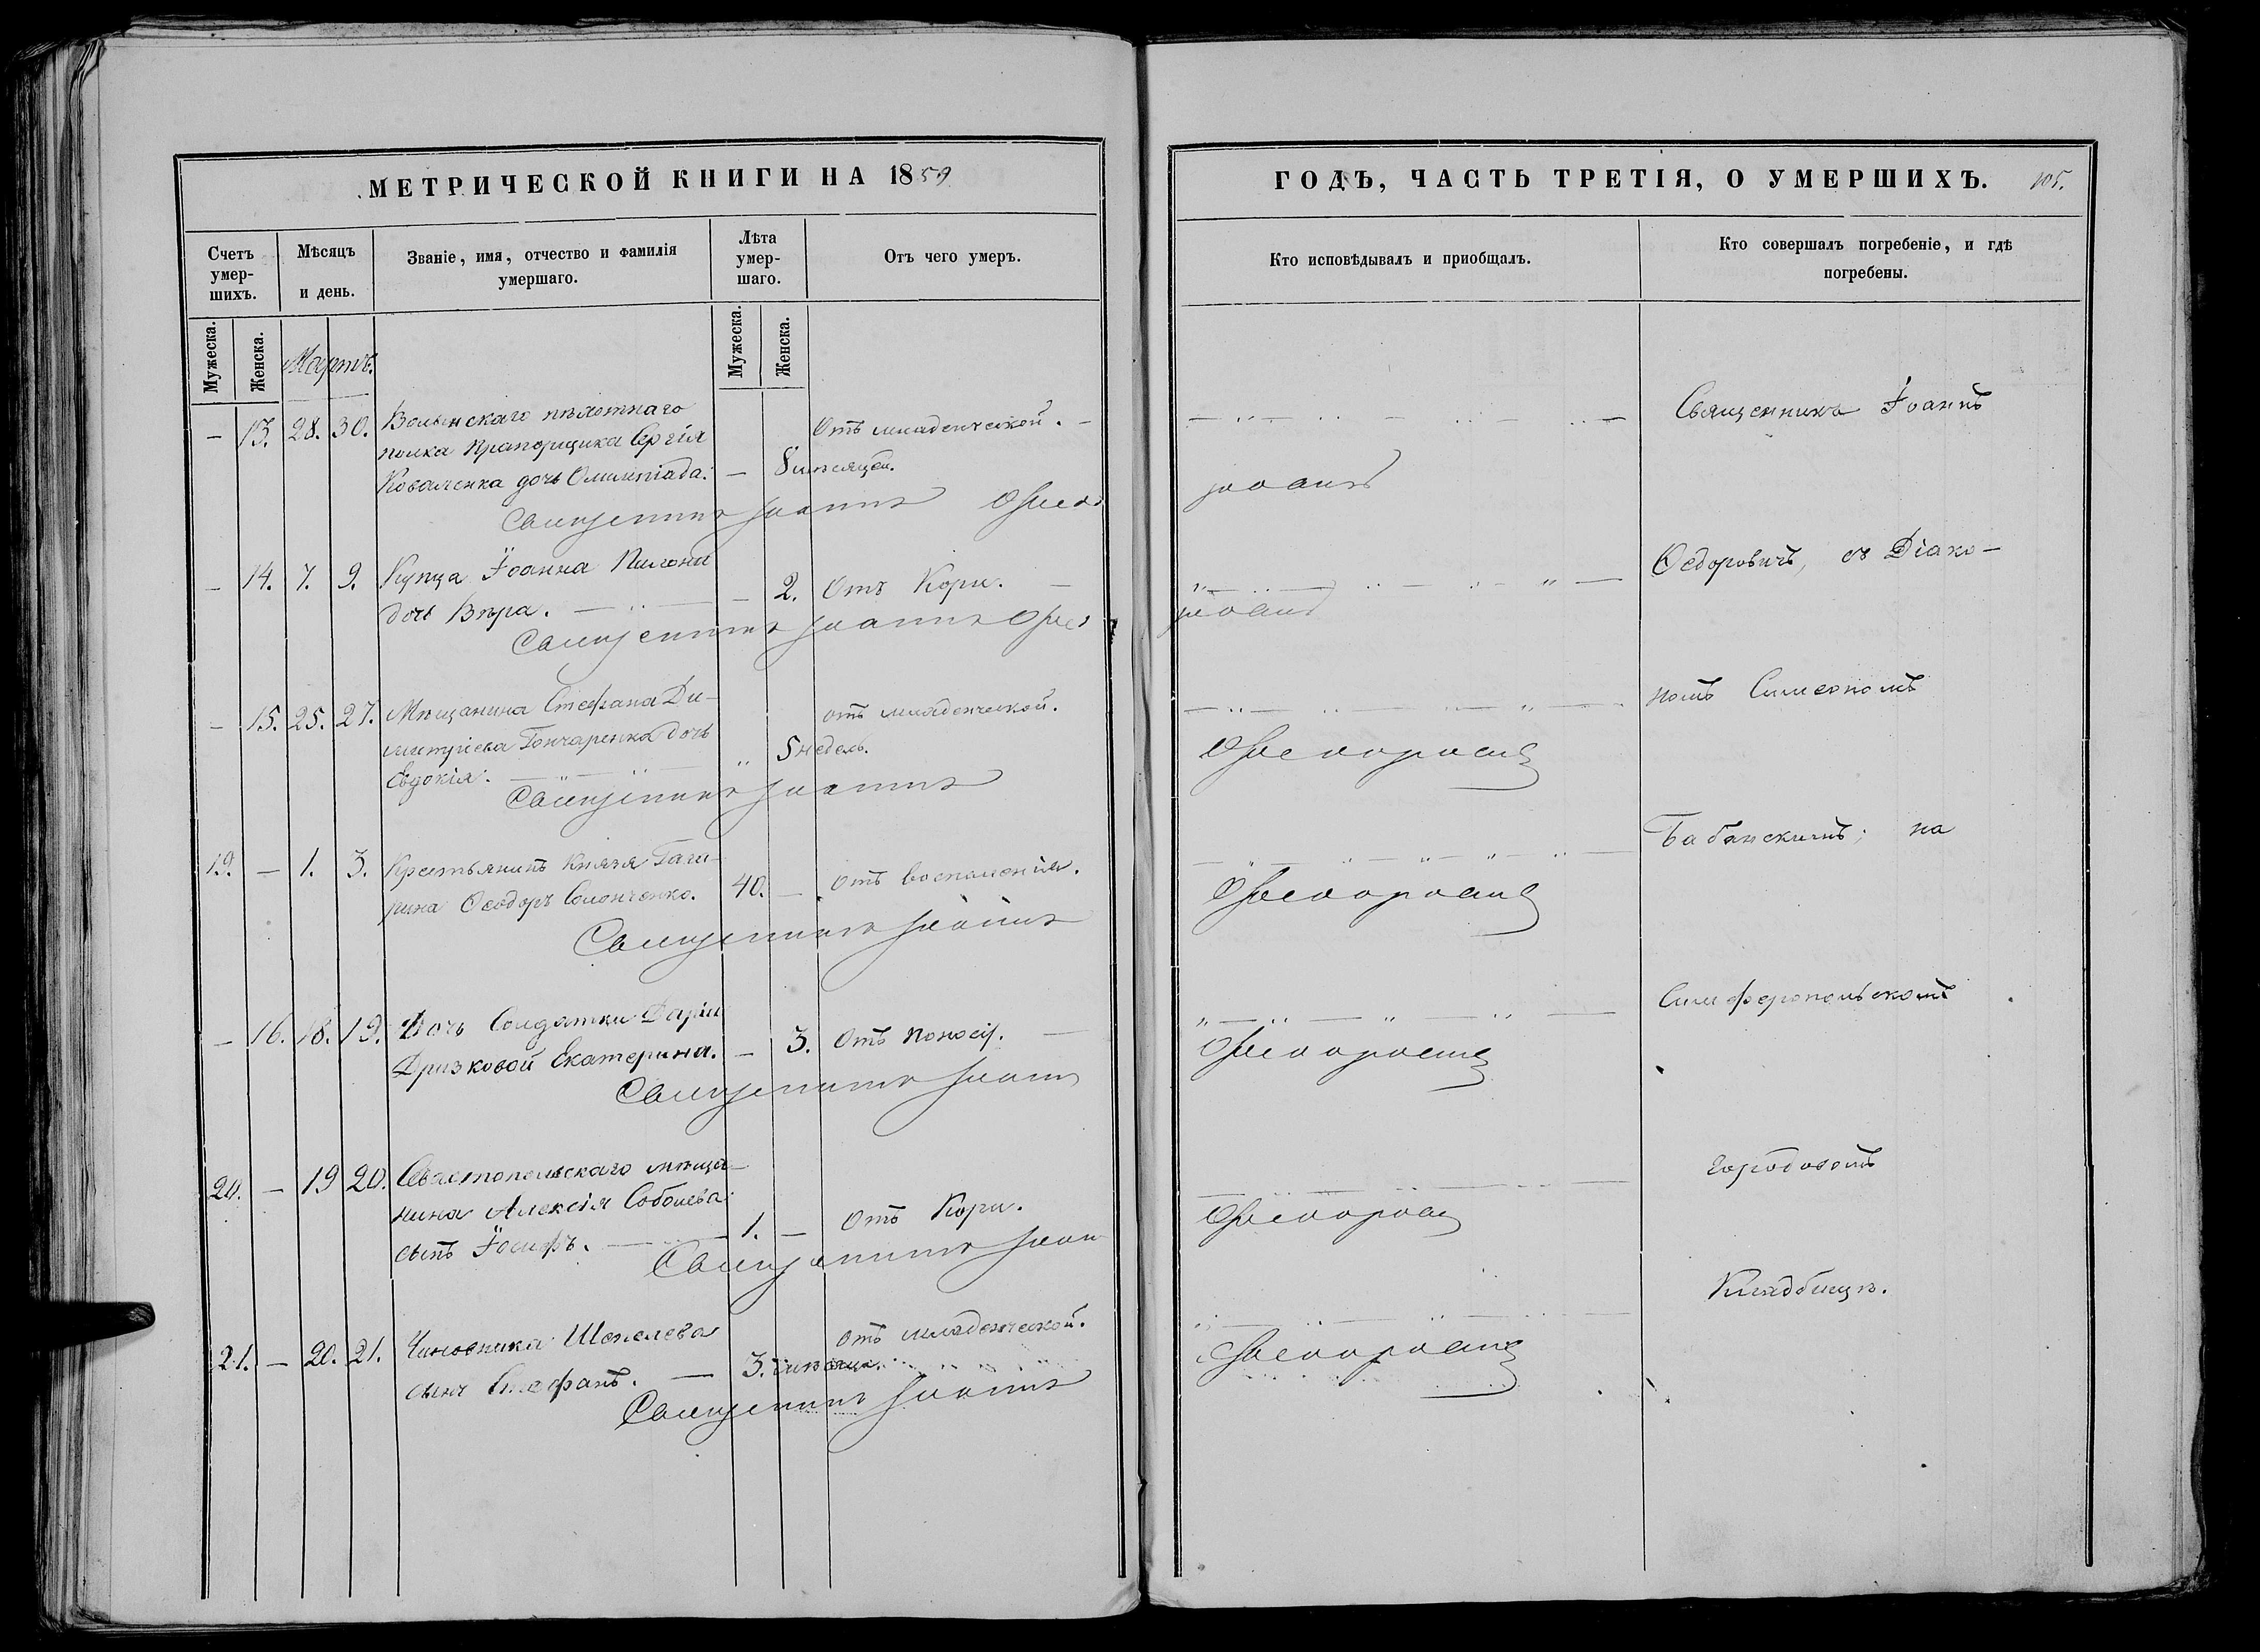 МЕТРИЧЕСКОЙ КНИГИ НА 1859
Счетъ умер-шихъ.
Мѣсяцъ и день.
Званіе, имя, отчество и фамилія умершаго.
Лѣта умер-шаго.
Отъ чего умеръ.
Мужеска. Женска. Мартъ. Мужеска. Женска.
– 13. 28. 30. Волынскаго пѣхотнаго
полка Прапорщика Сергія
Коваленка дочь Олимпіада. – 8 мѣсяцей. Отъ младенческой. –
Священникъ Іоаннъ
– 14. 7. 9. Купца Іоанна Пилони
дочь Вѣра. – 2. Отъ Кори. –
Священникъ Іоаннъ
– 15. 25. 27. Мѣщанина Стефана Ди-
митріева Гончаренка дочь
Евдокія. „ 5 недель. отъ младенческой.
Священникъ Іоаннъ
19. – 1. 3. Крестьянинъ Князя Гага-
рина Ѳеодоръ Солонченко. 40. – Отъ воспаленія.
Священникъ Іоаннъ
– 16. 18. 19. Дочь Солдатки Даріи
Дризковой Екатерина. – 3. Отъ поноса. –
Священникъ Іоаннъ
20. – 19 20. Севастопольскаго мѣща-
нина Алексія Соболева
сынъ Іосифъ. 1. – Отъ Кори.
Священникъ Іоан
21. – 20. 21. Чиновника Шепелева
сынъ Стефанъ. – 3. мѣсяца. отъ младенческой.
Священникъ Іоаннъ
ГОДЪ, ЧАСТЬ ТРЕТІЯ, О УМЕРШИХЪ. 105.
Кто исповѣдывалъ и приобщалъ.
Кто совершалъ погребеніе, и гдѣ погребены.
Священникъ Іоаннъ
Ѳедоровичъ, съ Діако-
номъ Симеономъ
Бабанскимъ; на
Симферопольскомъ
городовомъ
Кладбищѣ.